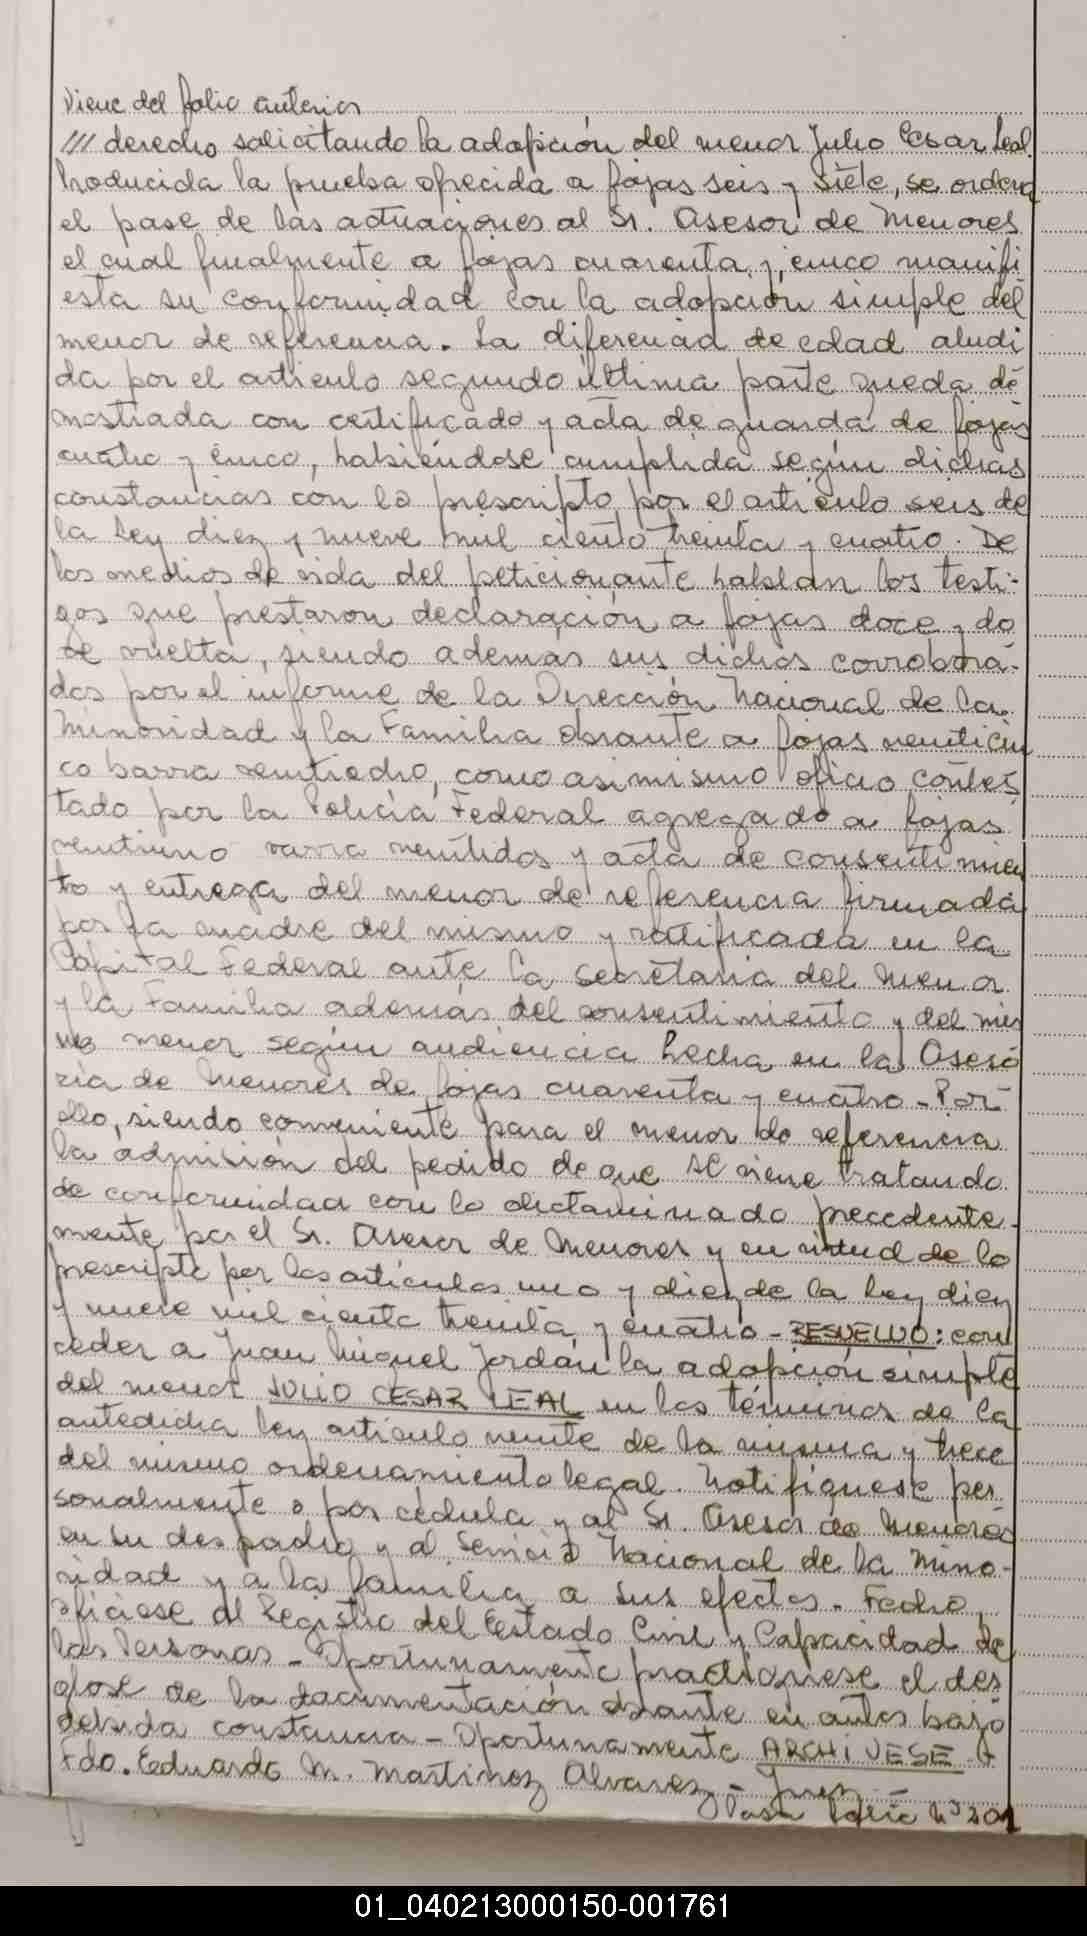 Viene del folio anterior
/// derecho solicitando la adopción del menor Julio Cesar Leal.
Producida la prueba ofrecida a fojas seis y siete, se ordena
el pase de las actuaciones al Sr. Asesor de Menores
el cual finalmente a fojas cuarenta y cinco manifi
esta su conformidad con la adopción simple del
menor de referencia. La diferenciad de edad aludi
da por el articulo segundo última parte queda de
mostrada con certificado y acta de guarda de fojas
cuatro y cinco, habiéndose cumplida según dichas
constancias con lo prescripto por el artículo seis de
la Ley diez y nueve mil ciento treinta y cuatro. De
los medios de vida del peticionante hablan los testi-
gos que prestaron declaración a fojas doce y do
ce vuelta, siendo ademas sus dichos corrobora-
dos por el informe de la Dirección Nacional de la
Minoridad y la Familia obrante a fojas veinticin
co barra veintiocho, como asimismo oficio contes
tado por la Policía Federal agregado a fojas
veintiuno varra veintidos y acta de consentimien
to y entrega del menor de referencia firmada
por la madre del mismo y ratificada en la
Capital Federal ante la secretaria del Menor
y la Familia además del consentimiento y del mis
mo menor según audiencia hecha en la Aseso
ria de Menores de fojas cuarenta y cuatro - Por
ello, siendo conveniente para el menor de referencia
la admisión del pedido de que se viene tratando
de conformidad con lo dictaminado precedente-
mente por el Sr. Asesor de Menores y en virtud de lo
prescripto por los artículos uno y diez de la Ley diez
y nueve mil ciento treinta y cuatro - RESUELVO: con
ceder a Juan Miguel Jordán la adopción simple
del menor JULIO CESAR LEAL en los términos de la
antedicha ley artículo veinte de la misma y trece
del mismo ordenamiento legal. Notifíquese per
sonalmente o por cédula y al Sr. Asesor de Menores
en su despacho y al Servicio Nacional de la Mino-
ridad y a la familia a sus efectos. Fecho,
ofíciese al Registro del Estado Civil y Capacidad de
las Personas - Oportunamente practiquese el des
glose de la documentación obrante en autos bajo
debida constancia - Oportunamente ARCHIVESE
Fdo. Eduardo M. Martinez Alvarez - Juez -
Pasa folio Nº 201
01_040213000150-001761